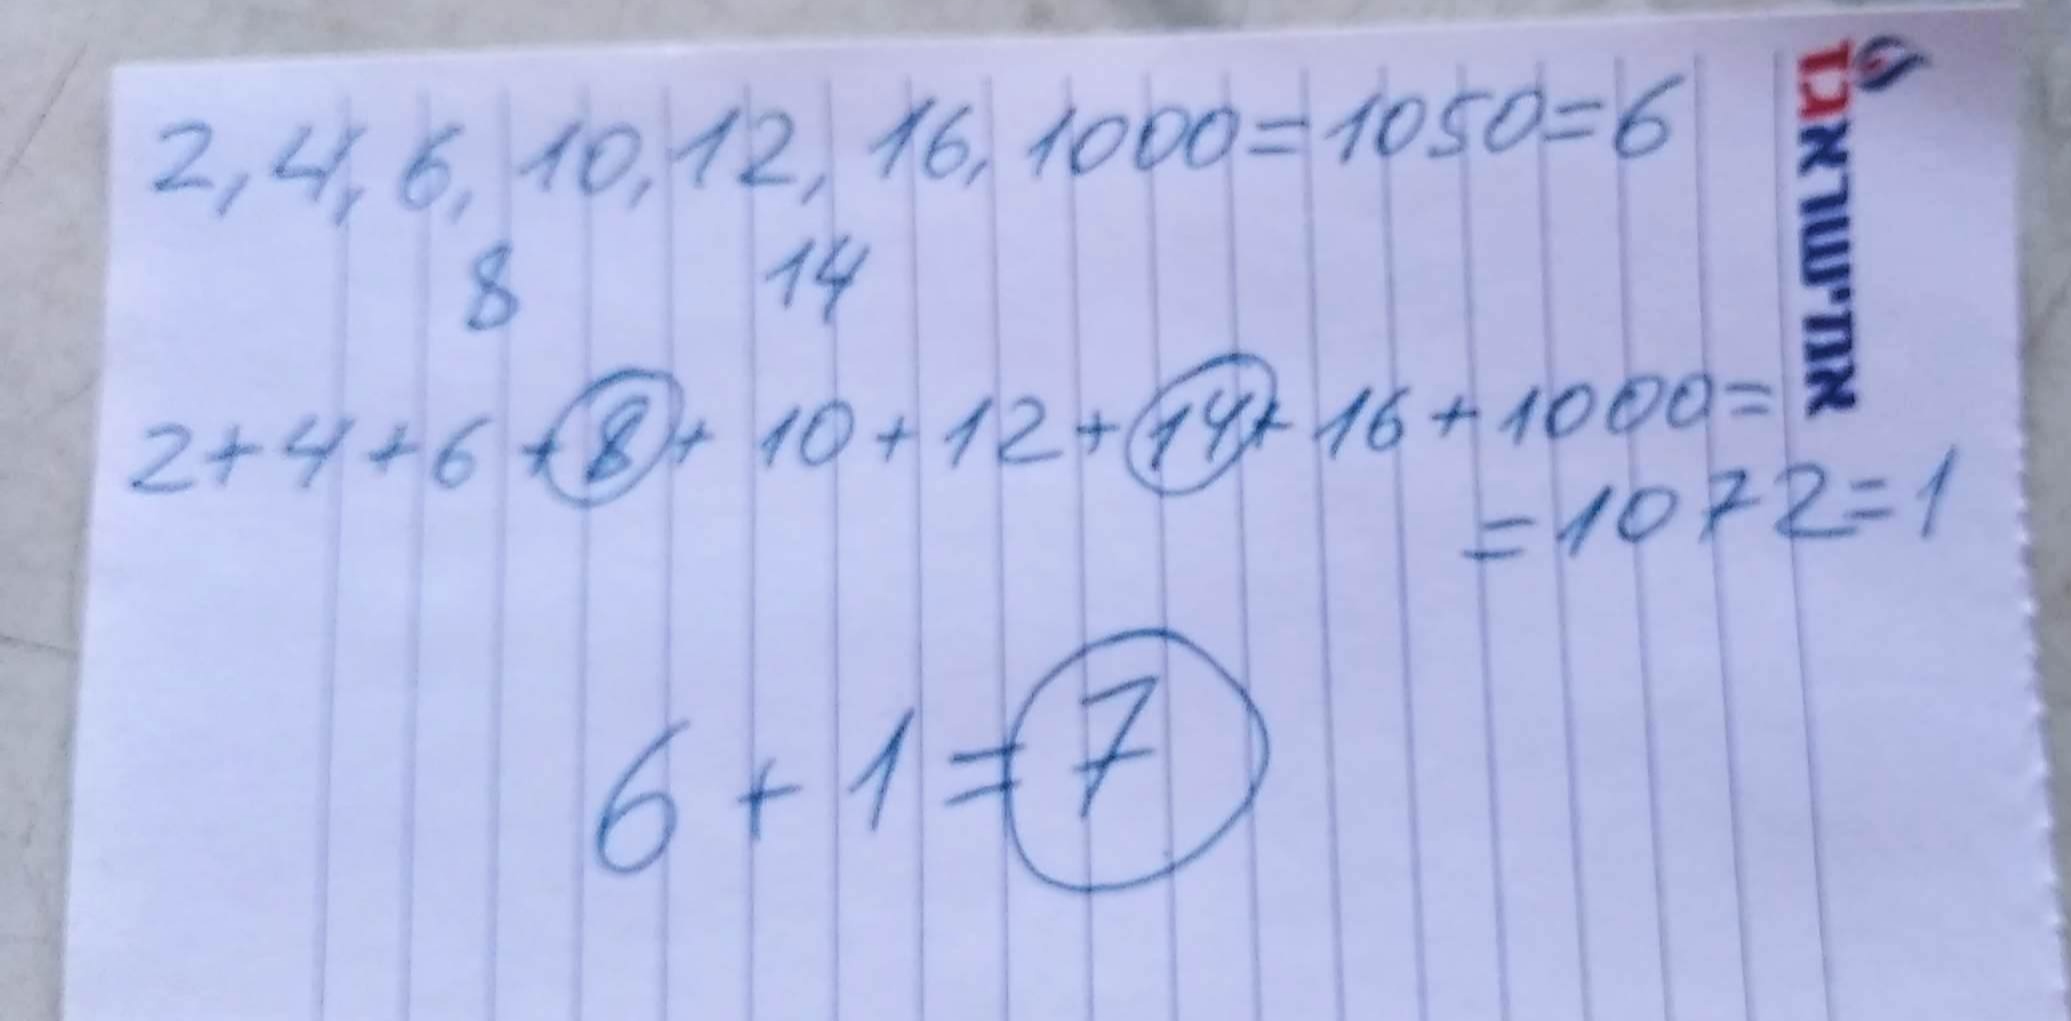 2, 4, 6, 10, 12, 16, 1000=1050=6
8 14
2+4+6+8+10+12+14+16+1000=
=1072=1
6+1=7
אמישראגז